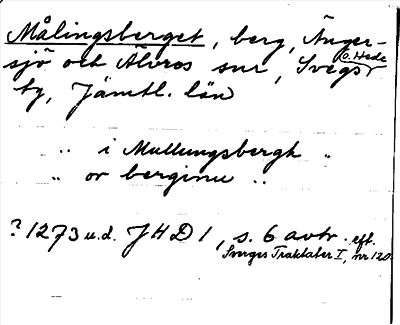 Målingsberget, berg, Änger-
sjö och Älvros snr, Svegs o. Hede
tg, Jämtl. län
.. i Mullungsbergh ..
.. or berginu ..
? 1273 u.d. JHD 1, s. 6 avtr. eft.
Sverges Traktater I, nr 120